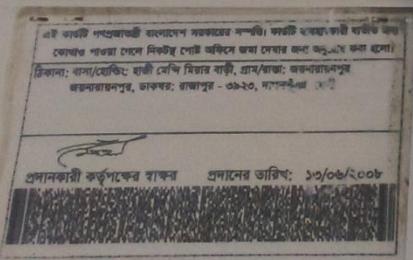 এই কার্ডটি গণপ্রজাতন্ত্রী বাংলাদেশ সরকারের সম্পত্তি। কার্ডটি ব্যবহারকারী ব্যতীত অন্য
কোথাও পাওয়া গেলে নিকটস্থ পোষ্ট অফিসে জমা দেবার জন্য অনুরোধ করা হলো।
ঠিকানা: বাসা/হোল্ডিং: হাজী মেন্দি মিয়ার বাড়ী, গ্রাম/রাস্তা: জয়নারায়নপুর
জয়নারায়নপুর, ডাকঘর: রাজাপুর - ৩৯২৩,
প্রদানকারী কর্তৃপক্ষের স্বাক্ষর প্রদানের তারিখ: ১৩/০৬/২০০৮